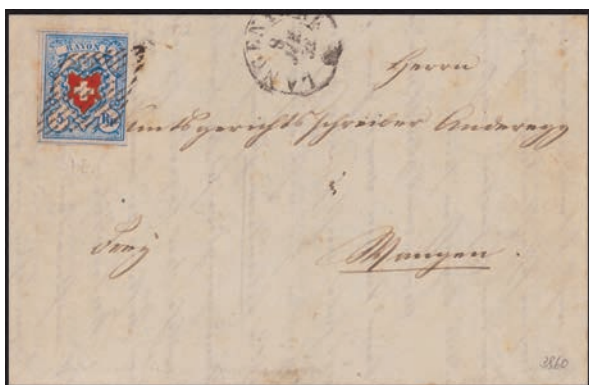 RAYON I.
5 Rp.
LANGENTHAL
8
Herrn
Amtsgerichtsschreiber Anderegg
Frey
Wangen.
3860